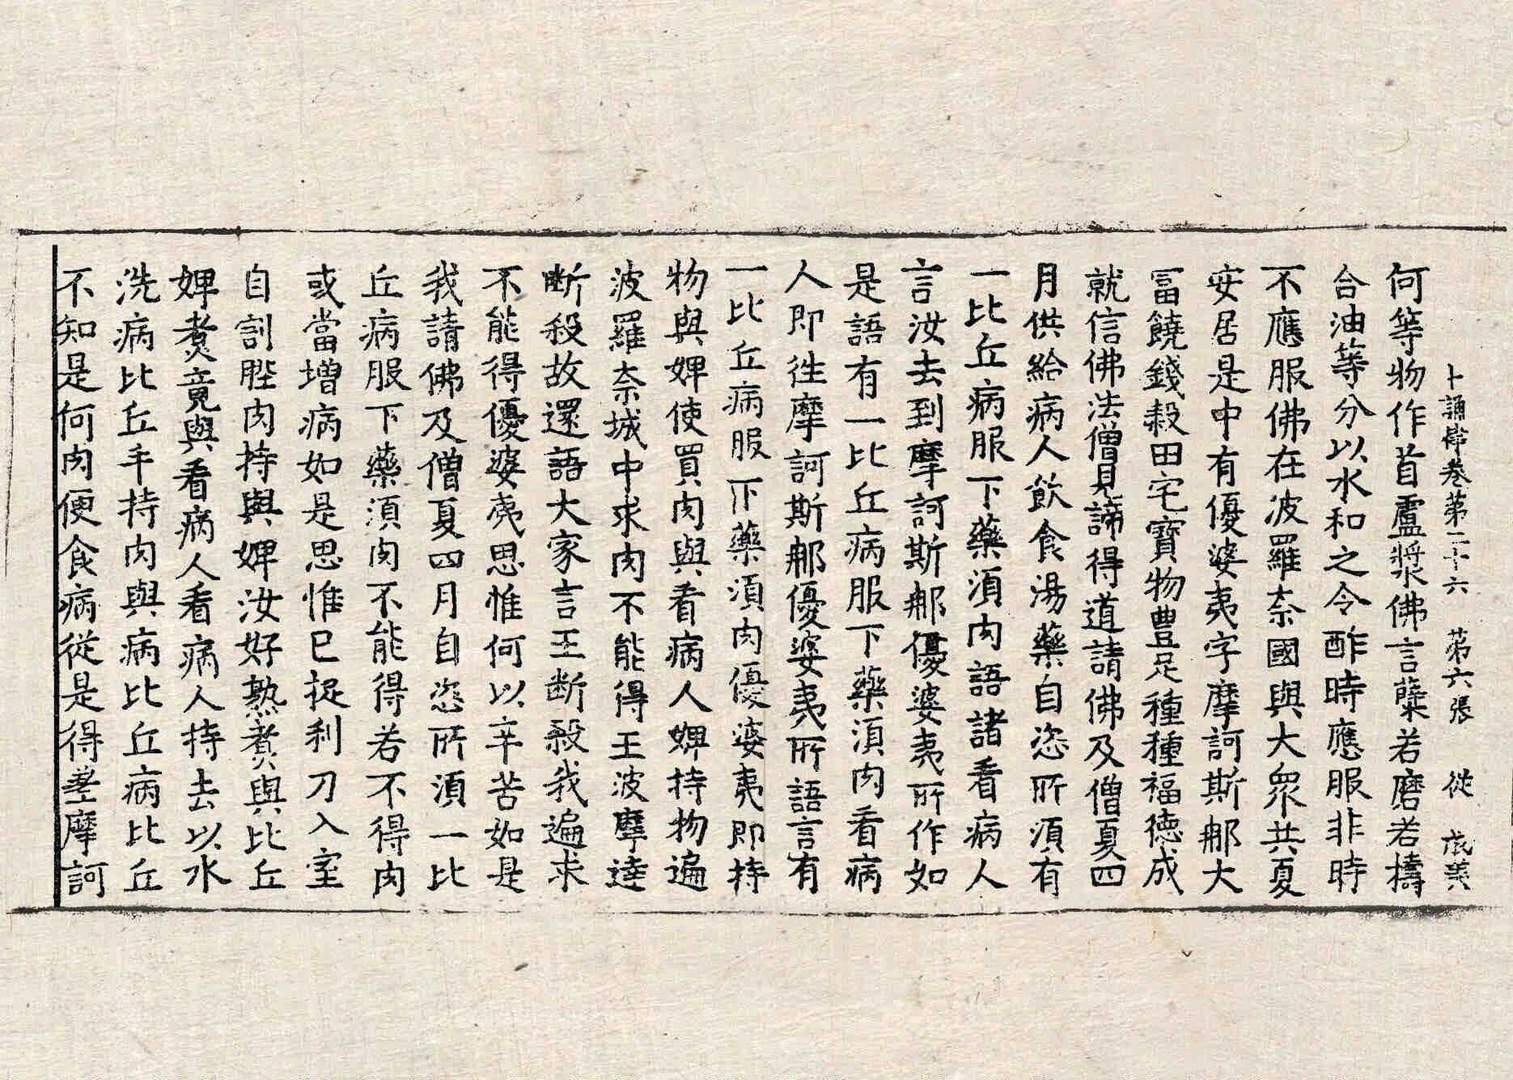 十誦律卷第二十六 第六張 從 茂美
何等物作首盧漿佛言蘗若磨若擣
合油等分以水和之令酢時應服非時
不應服佛在波羅柰國與大眾共夏
安居是中有優婆夷字摩訶斯那大
冨饒錢穀田宅寶物豊足種種福德成
就信佛法僧見諦得道請佛及僧夏四
月供給病人飲食湯藥自恣所須有
一比丘病服下藥須肉語諸看病人
言汝去到摩訶斯那優婆夷所作如
是語有一比丘病服下藥須肉看病
人即徃摩訶斯那優婆夷所語言有
一比丘病服下藥須肉優婆夷即持
物與婢使買肉與看病人婢持物遍
波羅柰城中求肉不能得王波摩達
斷殺故還語大家言王斷殺我遍求
不能得優婆夷思惟何以辛苦如是
我請佛及僧夏四月自恣所須一比
丘病服下藥須肉不能得若不得肉
或當增病如是思惟已捉利刀入室
自割䏶肉持與婢汝好熟煮與比丘
婢煮竟與看病人看病人持去以水
洗病比丘手持肉與病比丘病比丘
不知是何肉便食病從是得差摩訶